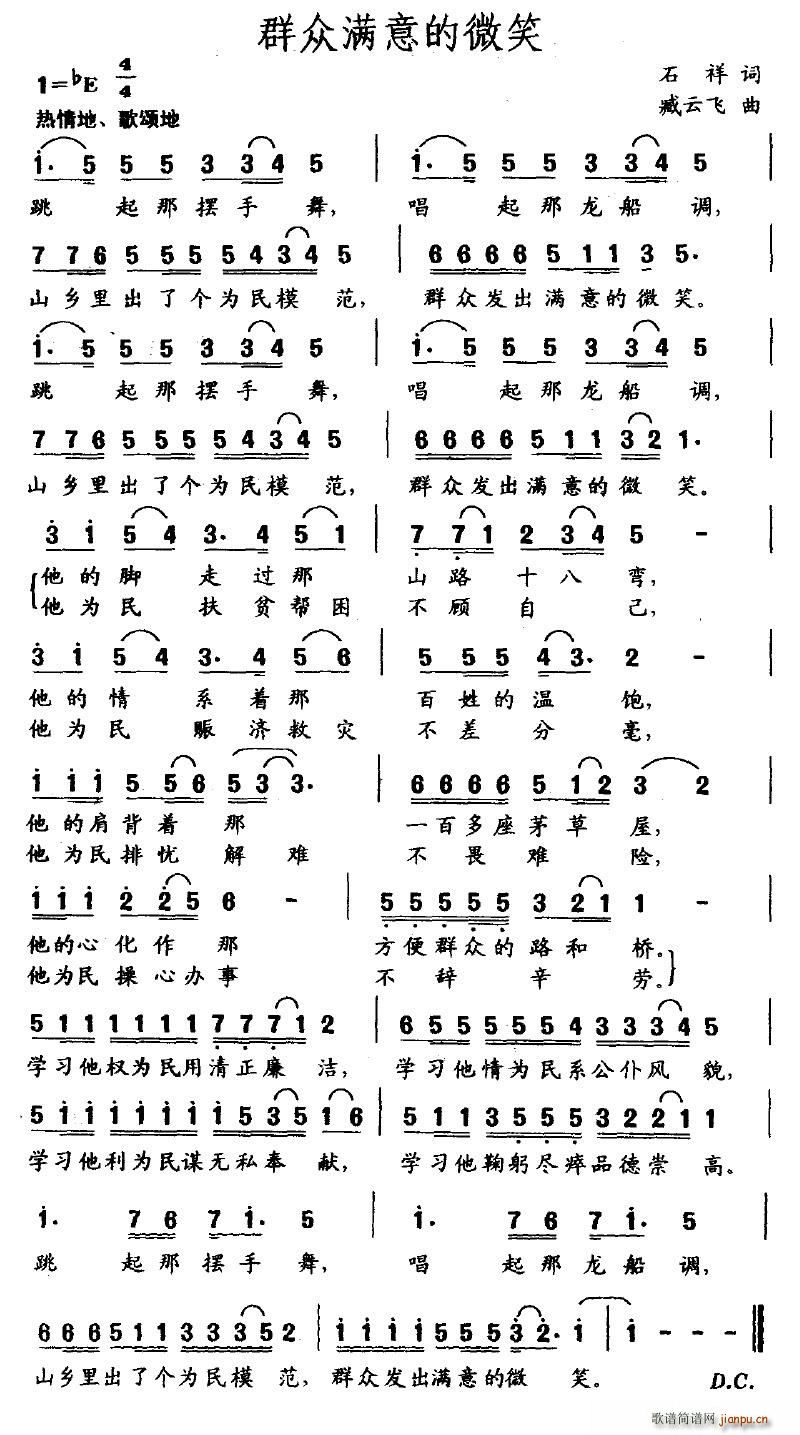 群众满意的微笑
1=♭E 4/4
石祥词
臧云飞 曲
热情地、歌颂地
i. 5 5 5 3 3 4 5 | i. 5 5 5 3 3 4 5 |
跳 起那摆手 舞, 唱 起那龙船 调,
7 7 6 5 5 5 5 4 3 4 5 | 6 6 6 6 5 1 1 3 5. |
山乡里出了个为民模 范, 群众发出满意的微笑。
i. 5 5 5 3 3 4 5 | i. 5 5 5 3 3 4 5 |
跳 起那摆手 舞, 唱 起那龙船 调,
7 7 6 5 5 5 5 4 3 4 5 | 6 6 6 6 5 1 1 3 2 1. |
山乡里出了个为民模 范, 群众发出满意的微 笑。
3 i 5 4 3. 4 5 1 | 7 7 1 2 3 4 5 - |
他的脚 走过那 山路十八弯,
他为民 扶贫帮困 不顾自己,
3 i 5 4 3. 4 5 6 | 5 5 5 5 4 3. 2 - |
他的情 系着那 百姓的温 饱,
他为民 赈济救灾 不差分 毫,
i i i 5 5 6 5 3 3. | 6 6 6 6 5 1 2 3 2 |
他的肩背着那 一百多座茅草 屋,
他为民排忧 解难 不畏难 险,
i i i 2 2 5 6 - | 5 5 5 5 5 3 2 1 1 - |
他的心化作那 方便群众的路和 桥。
他为民操心办事 不辞辛 劳。
5 1 1 1 1 1 1 7 7 7 1 2 | 6 5 5 5 5 5 4 3 3 3 4 5 |
学习他权为民用清正廉 洁, 学习他情为民系公仆风 貌,
5 i i i i i i 5 3 5 1 6 | 5 1 1 3 5 5 5 3 2 2 1 1 |
学习他利为民谋无私奉 献, 学习他鞠躬尽瘁品德崇 高。
i. 7 6 7 i. 5 | i. 7 6 7 i. 5 |
跳 起那摆手 舞, 唱 起那龙船 调,
6 6 6 5 1 1 3 3 3 5 2 | i i i i 5 5 5 3 2. i | i - - - ‖
山乡里出了个为民模 范, 群众发出满意的微 笑。 D.C.
歌谱简谱网 jianpu.cn